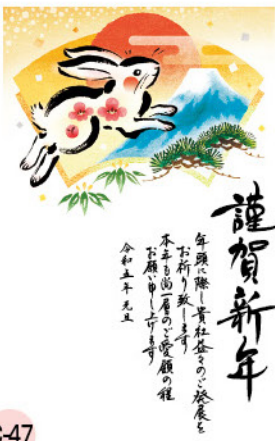 謹賀新年
年頭に際し貴社益々のご発展を
お祈り致します
本年も尚一層のご愛顧の程
お願い申し上げます
令和五年元旦
-47